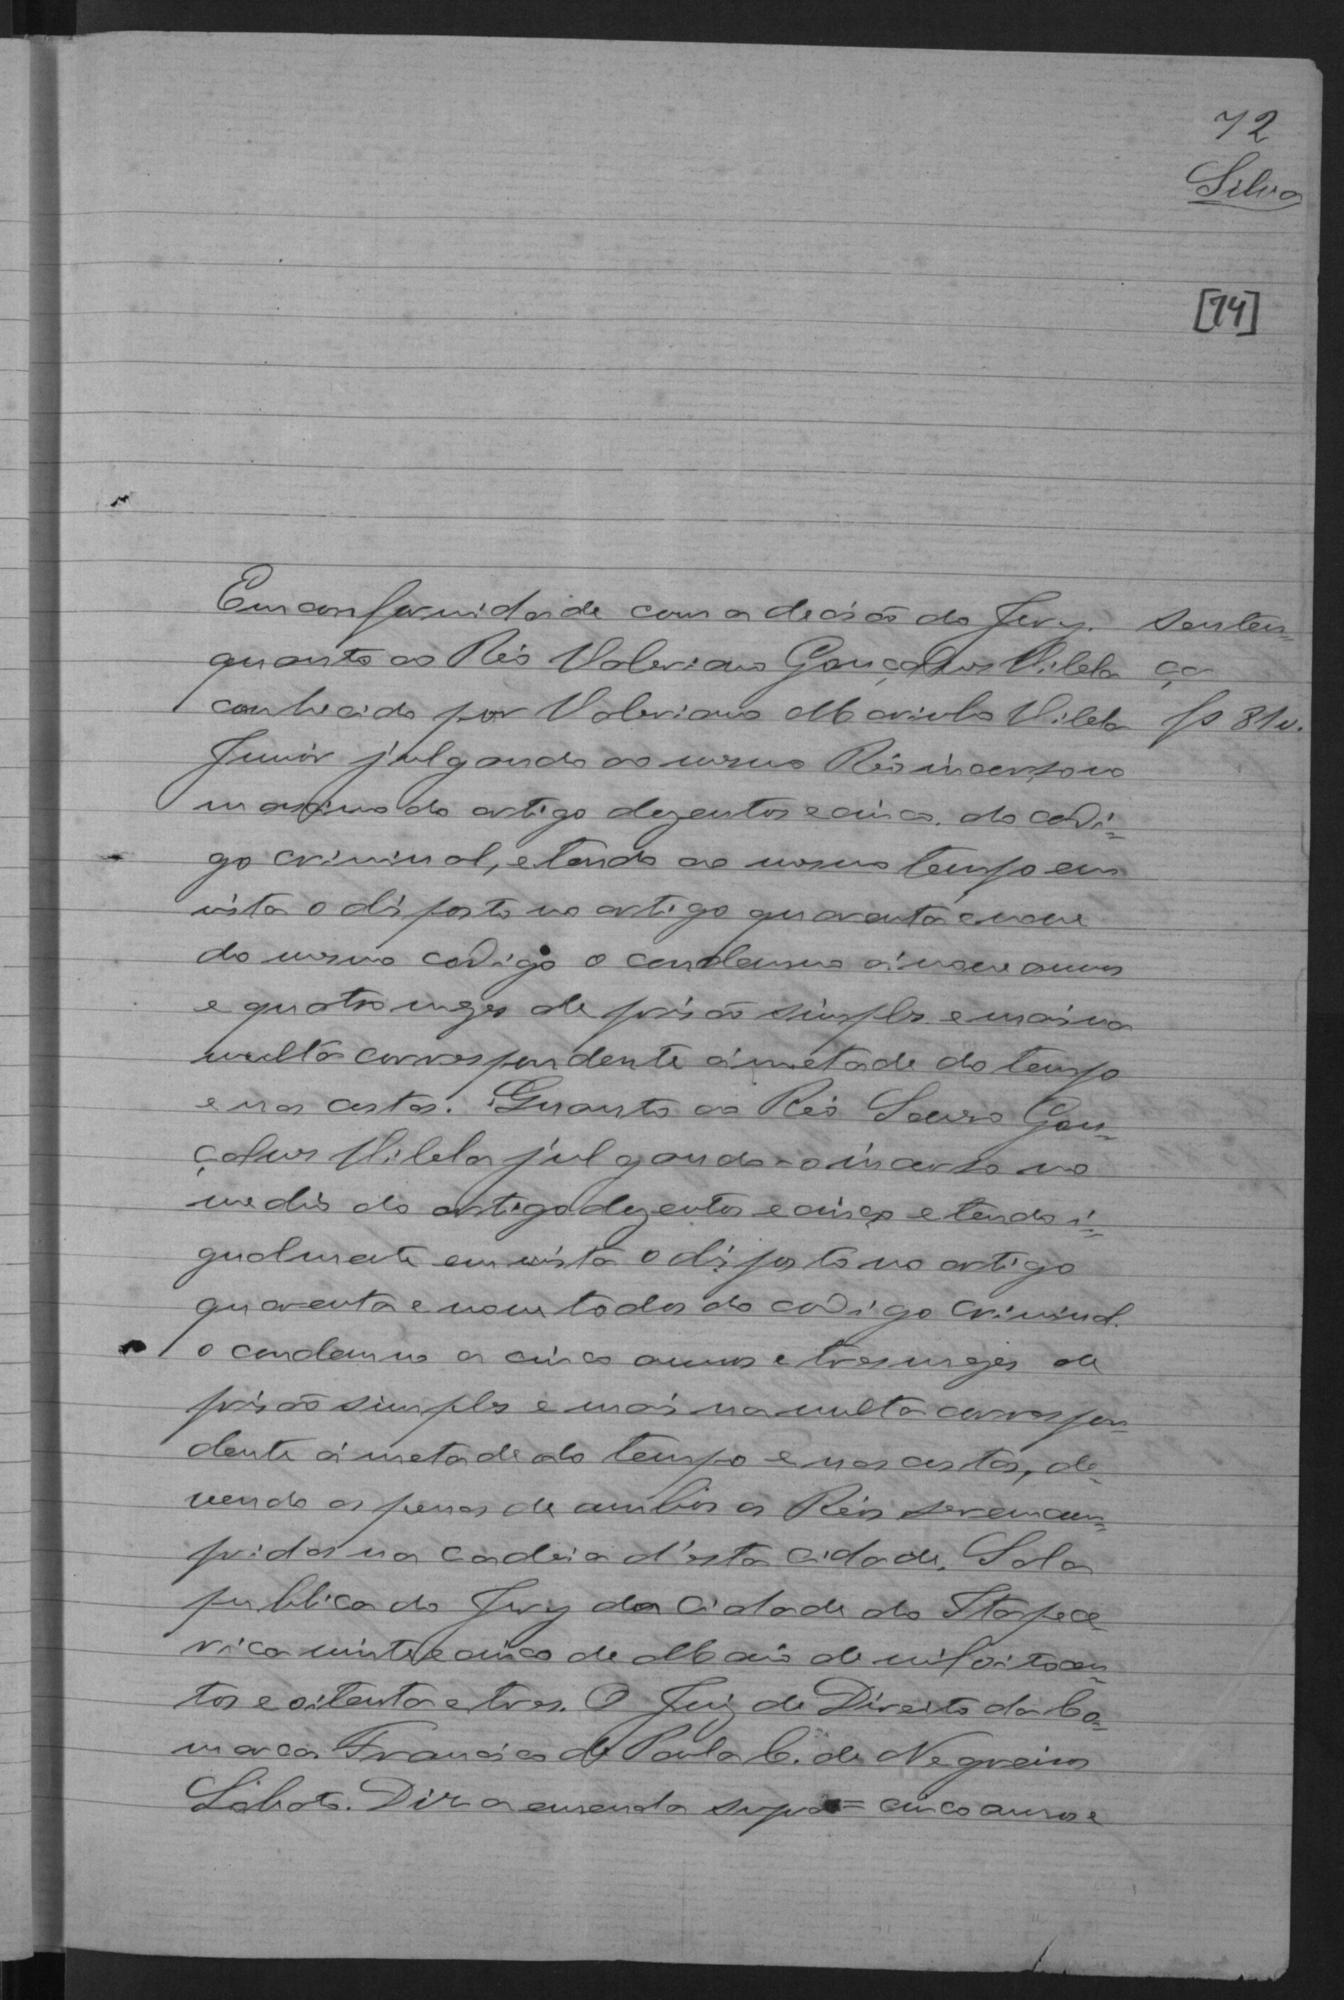 72
Silva
[74]
Em conformidade com a decisão do Jury.
Senten=
quanto ao Réo Valeriano Gonçalves Vilela
ça
conhecido por Valeriano Marinho Vilela
fs 81v.
Junior julgando ao mesmo Réo incurso no
maximo do artigo duzentos e cinco do codi=
go criminal, e tendo ao mesmo tempo em
vista o disposto no artigo quarenta e nove
do mesmo codigo o condemno á nove annos
e quatro mezes de prisão simples e mais na
multa correspondente á metade do tempo
e nas custas. Quanto ao Réo Gon=
çalves Vilela julgando-o incurso no
medio do artigo duzentos e cinco e tendo i=
gualmente em vista o disposto no artigo
quarenta e nove todos do codigo criminal
o condemno a cinco annos e tres mezes de
prisão simples e mais na multa correspon=
dente á metade do tempo e nas custas, de=
vendo as penas de ambos os Réos serem cum=
pridas na cadeia d'esta cidade. Sala
publica do Jury da Cidade do Itapece=
rica vinte e cinco de Maio de mil oito cen=
tos e oitenta e tres. O Juiz de Direito da Co=
marca Francisco de Paula C. de Negreiros
Lobato. Diz a emenda supra= cinco annos e